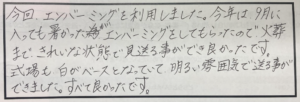 今回、エンバーミングを利用しました。今年は9月に
入っても暑かった為エンバーミングをしてもらったので火葬
まできれいな状態で見送る事ができ良かったです。
式場も白がベースとなっていて明るい雰囲気で送る事が
できました。すべて良かったです。